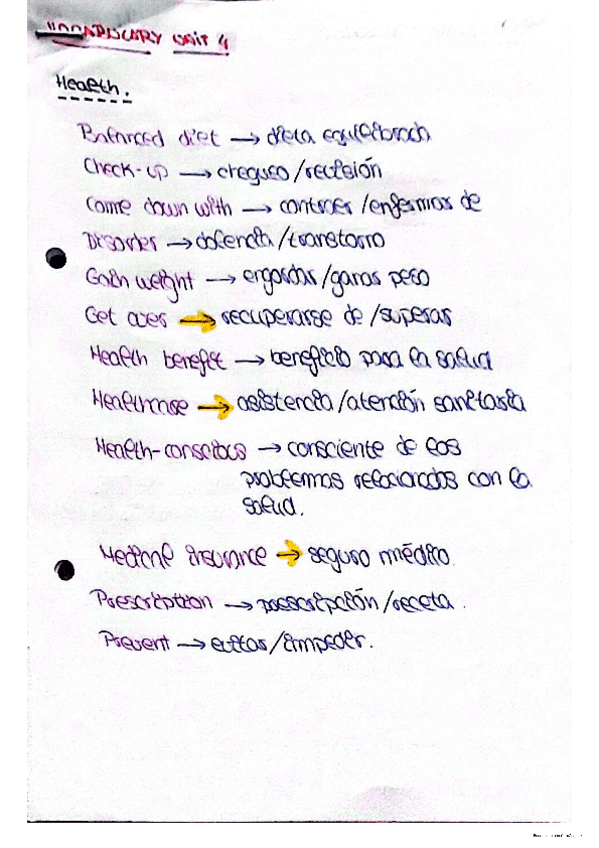 VOCABULARY UNIT 4
Health.
Balanced diet → dieta equilibrada
Check-up → chequeo/revisión
Come down with → contraer/enfermar de
Disorder → dolencia/transtorno
Gain weight → engordar/ganar peso
Get over → recuperarse de/superar
Health benefit → beneficio para la salud
Healthcare → asistencia/atención sanitaria
Health-conscious → consciente de los
problemas relacionados con la
salud.
Medical insurance → seguro médico.
Prescription → prescripción/receta.
Prevent → evitar/impedir.